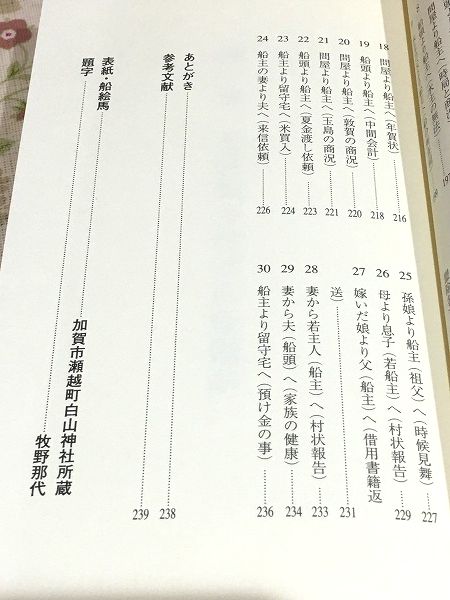 18 問屋より船主へ(年賀状) 216
19 船頭より船主へ(中間会計) 218
20 問屋より船主へ(敦賀の商況) 220
21 問屋より船主へ(玉島の商況) 221
22 船頭より船主へ(夏金渡し依頼) 223
23 船主より留守宅へ(米買入) 224
24 船主の妻より夫へ(来信依頼) 226
25 孫娘より船主(祖父)へ(時候見舞) 227
26 母より息子(若船主)へ(村状報告) 229
27 嫁いだ娘より父(船主)へ(借用書籍返
送) 231
28 妻から若主人(船主)へ(村状報告) 233
29 妻から夫(船頭)へ(家族の健康) 234
30 船主より留守宅へ(預け金の事) 236
あとがき 238
参考文献 239
表紙・船絵馬 加賀市瀬越町白山神社所蔵
題字 牧野那代